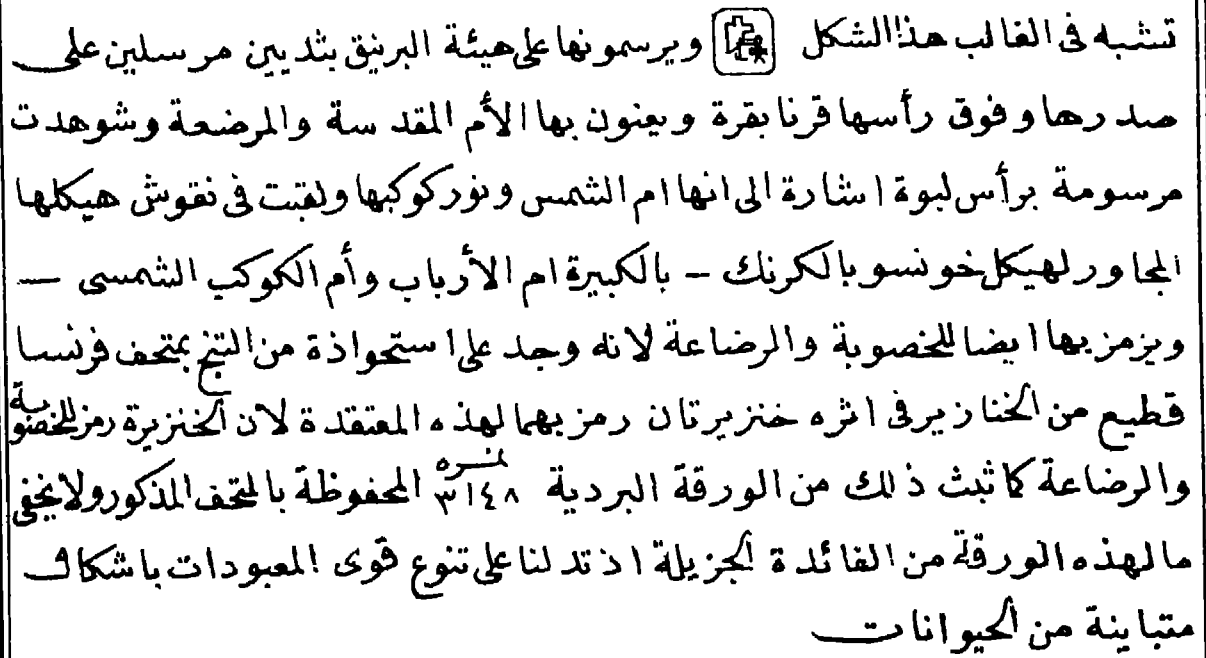 تشبه فى الغالب هذا الشكل ويرسمونها على هيئة البرنيق بثديين مرسلين على
صدرها وفوق رأسها قرنا بقرة ويعنون بها الأم المقدسة والمرضعة وشوهدت
مرسومة برأس لبوة اشارة الى انها ام الشمس ونور كوكبها ولقبت فى نقوش هيكلها
المجاور لهيكل خونسو بالكرنك – بالكبيرة ام الأرباب وأم الكوكب الشمسى —
ويرمز بها ايضا للخصوبة والرضاعة لانه وجد على استحواذة من التبخ بمتحف فرنسا
قطيع من الخنازير فى اثره خنزيرتان رمز بهما لهذه المعتقدة لان الخنزيرة رمز للخصوبة
والرضاعة كما ثبث ذلك من الورقة البردية نمره ٣١٤٨ المحفوظة بالمتحف المذكور ولا يخفى
ما لهذه الورقة من الفائدة الجزيلة اذ تدلنا على تنوع قوى المعبودات باشكال
متباينة من الحيوانات